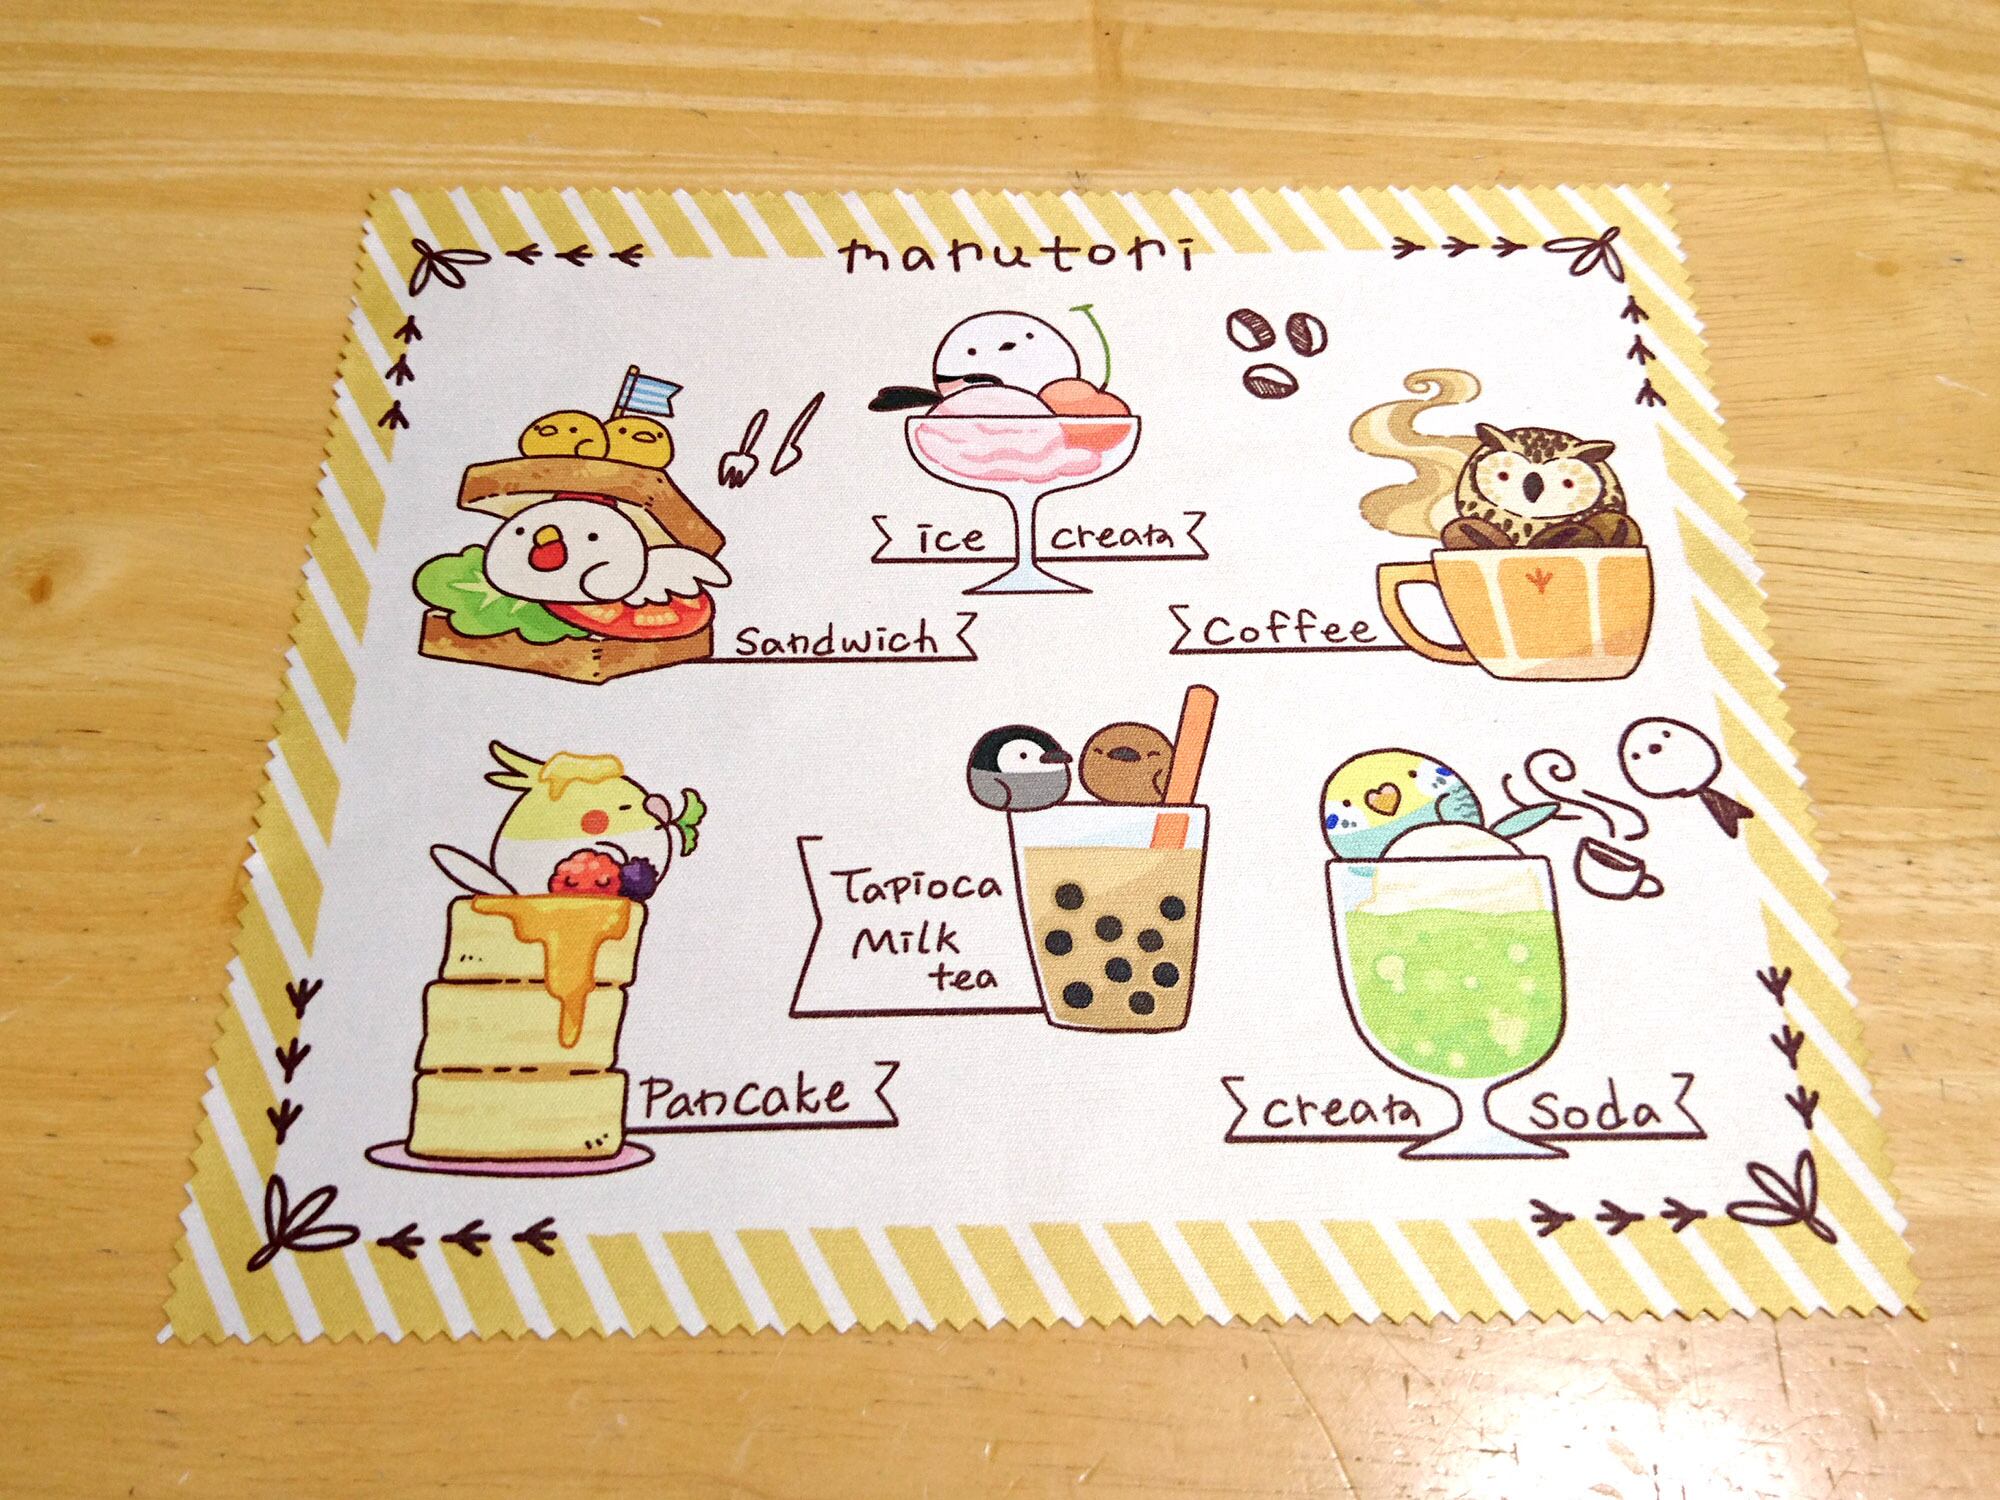 marutori
ice cream
Sandwich
Coffee
Tapioca
Milk
tea
Pancake
cream Soda